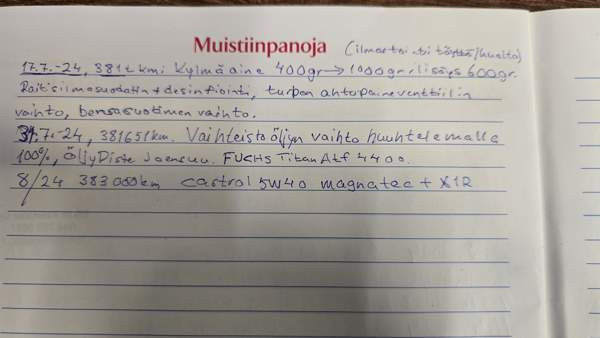 Muistiinpanoja (ilmastoi.. täyttö/huolto)
17.7.-24, 381t km: Kylmäaine 400gr → 1000gr, lisäys 600gr.
Raitisilmasuodatin + desinfiointi, turbon ahtopaineventtiilin
vaihto, bensasuotimen vaihto.
31.7.-24, 381651km. Vaihteistoöljyn vaihto huuhtelemalla
100%, ÖljyDiste Joensuu. FUCHS Titan Atf 4400.
8/24 383 000km castrol 5W40 magnatec + X1R